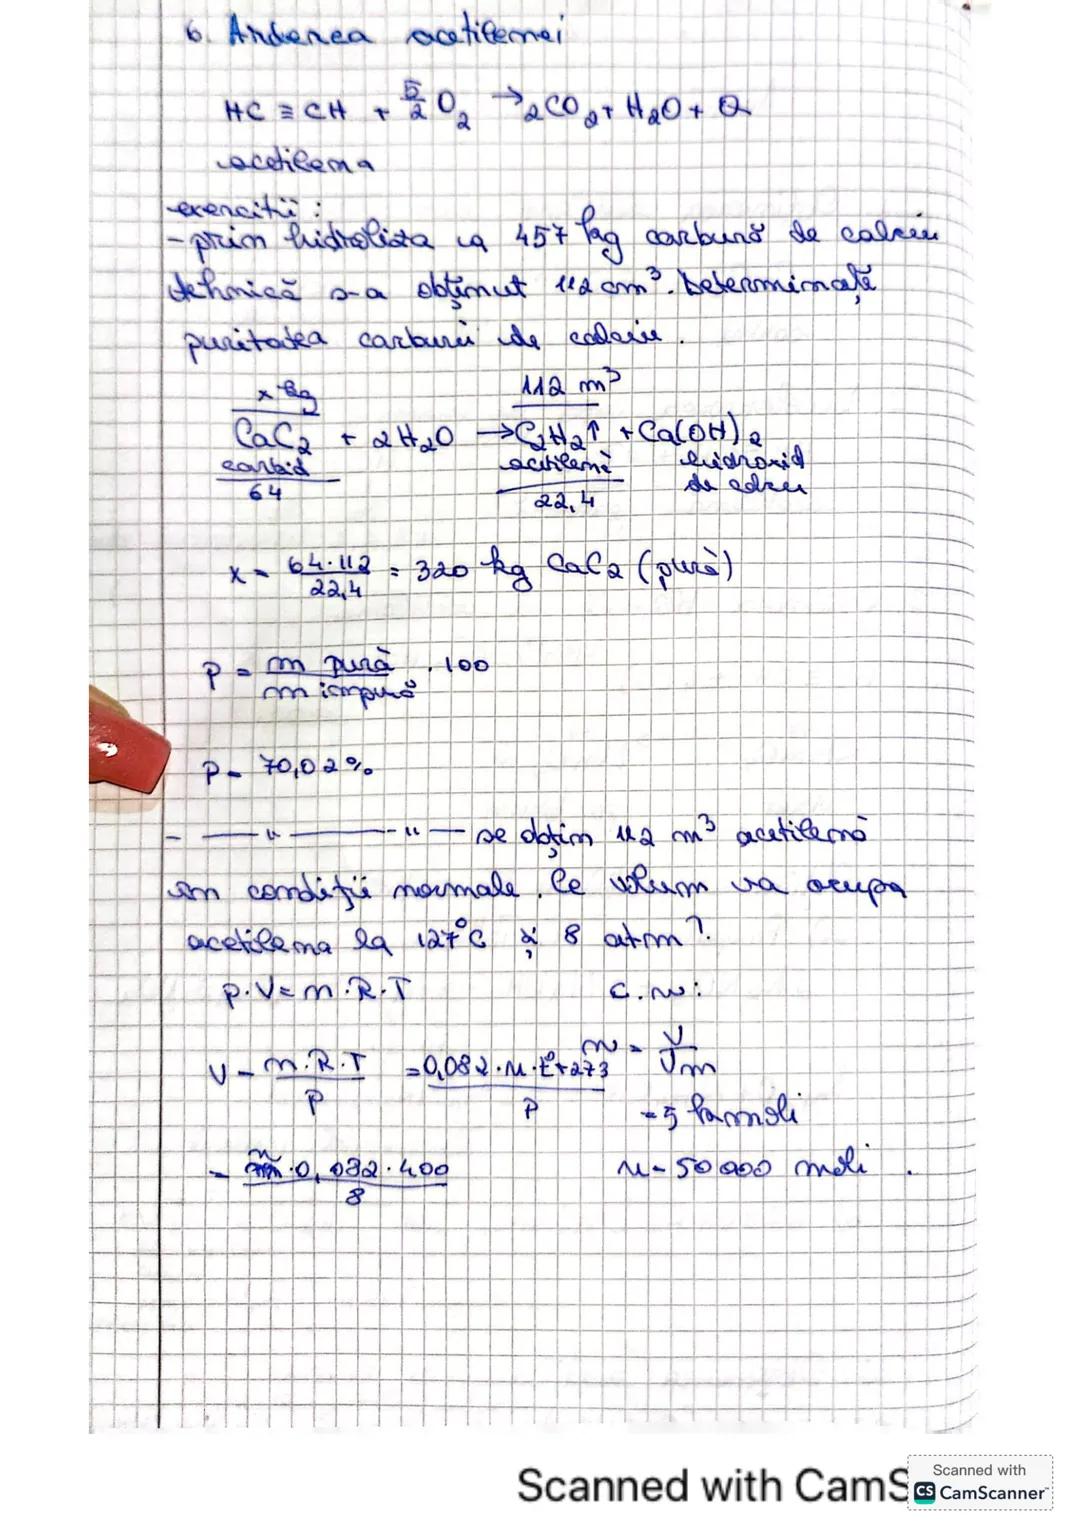 6. Arderea acetilenei
HC ≡ CH + 5/2 O₂ → 2CO₂ + H₂O + Q
acetilena
exerciții :
- prin hidroliza a 457 kg carbură de calciu
tehnică s-a obținut 112 cm³. Determinată
puritatea carburii de calciu.
x kg 112 m³
CaC₂ + 2H₂O → C₂H₂↑ + Ca(OH)₂
carbid acetilenă hidroxid
64 22,4 de calciu
x = 64·112/22,4 = 320 kg CaC₂ (pură)
p = m pură/m impură · 100
p = 70,02%
- —"———"— se obțin 112 m³ acetilenă
în condiții normale. Ce volum va ocupa
acetilena la 127°C și 8 atm?
p·V = n·R·T C.N:
V = n·R·T/p = 0,082·n·t°+273/p n = V/Vm
= 5 kmoli
= n·0,082·400/8 n = 50000 moli.
Scanned with CamS
Scanned with
CS CamScanner